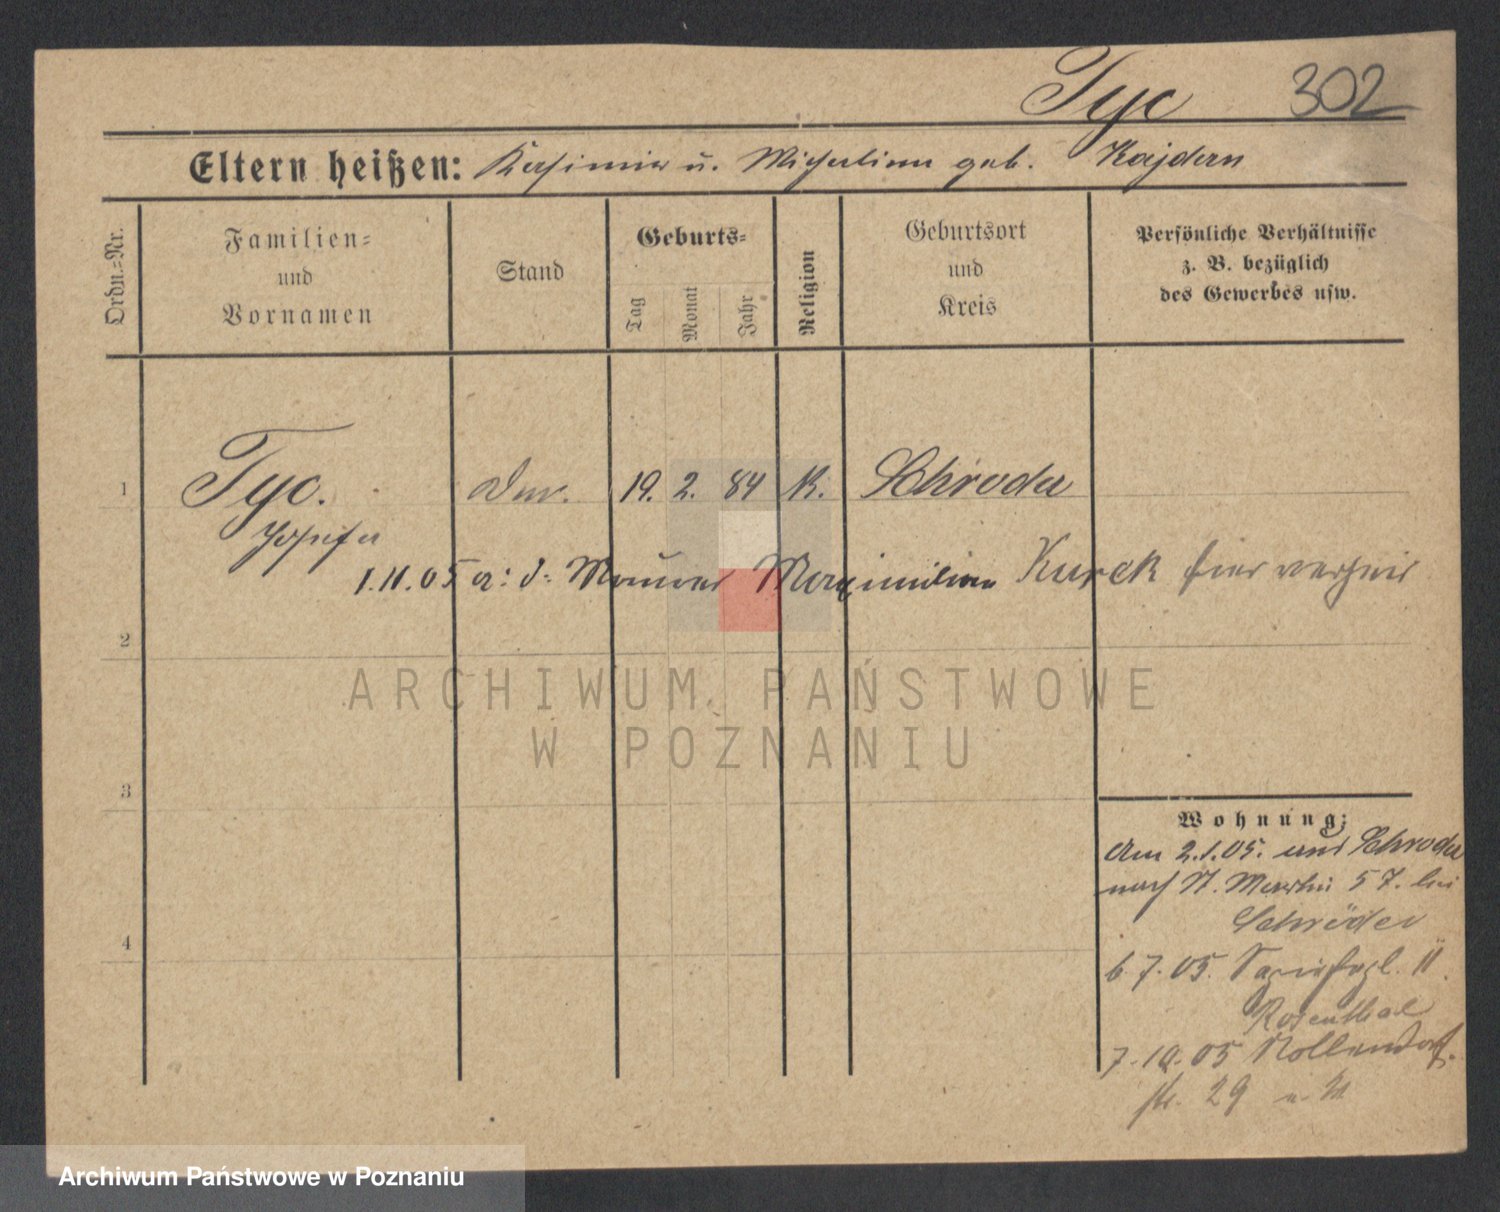 Tyc 302
Eltern heißen: Kasimir u. Michalina geb. Kajdan
Ordn.=Nr.
Familien=
und
Vornamen
Stand
Geburts=
Tag
Monat
Jahr
Religion
Geburtsort
und
Kreis
Persönliche Verhältnisse
z. B. bezüglich
des Gewerbes usw.
1 Tyc. 19. 2. 84 K. Schroda
Josefa
1.11.05 a: d: Maurer Maximilian Kurek hier verh
2
3
4
Wohnung:
Am 2.1.05. aus Schroda
nach St. Martin 57. bei
Schröder
6.7.05. 11.
Rosenthal
7.10.05 Nollendorf
str. 29
ARCHIWUM PAŃSTWOWE
W POZNANIU
Archiwum Państwowe w Poznaniu